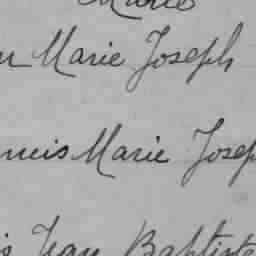 Marie
Marie Joseph
ncis Marie Josep
Jean Baptiste